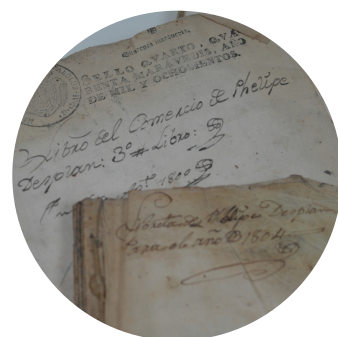 SELLO QVARTO, QVA
RENTA MARAVEDIS, AÑO
DE MIL Y OCHOCIENTOS.
Libro del Comercio de Phelipe
Despian: 3º Libro:
1800
Libreta de Phelipe Despian
para el año de 1804